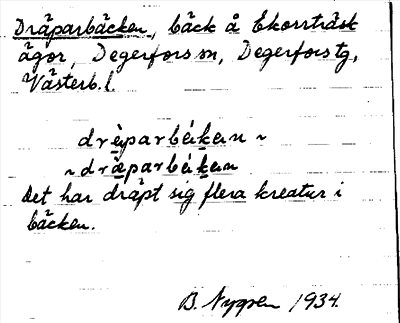 Dräparbäcken, bäck å Ekorrträsk
ägor, Degerfors sn, Degerfors tg,
Västerb. l.
drèparbéiken ~
~ dræparbéiken
Det har dräpt sig flera kreatur i
bäcken.
B. Nygren 1934.